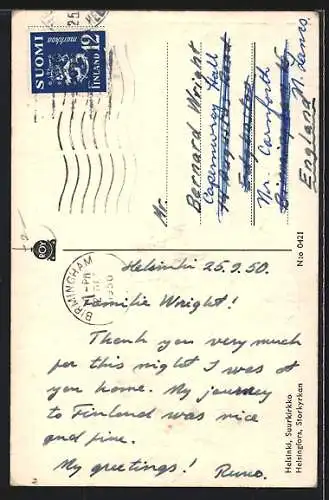 SUOMI
markkaa
12
FINLAND
BIRMINGHAM
1950
ROY
Mr.
Bernard Wright
Capernwray Hall
Nr. Carnforth
England N. Lancs.
Helsinki 25.9.50.
Familie Wright!
Thank you very much
for this night I was at
you home. My journey
to Finland was nice
and fine.
My greetings! Runo.
N:o 0421
Helsinki, Suurkirkko
Helsingfors, Storkyrkan